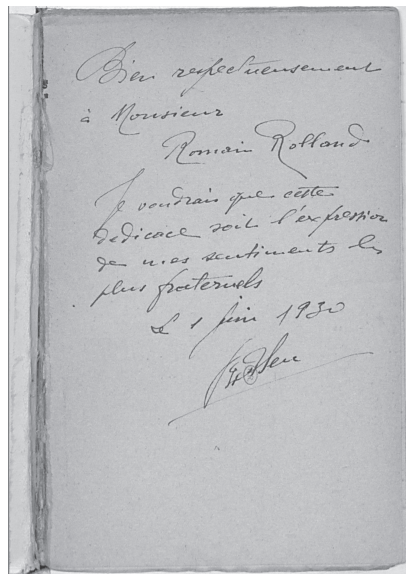 Bien respectueusement
à Monsieur
Romain Rolland
Je voudrais que cette
dedicace soit l'expression
de mes sentiments les
plus fraternels
Le 1 Juin 1930